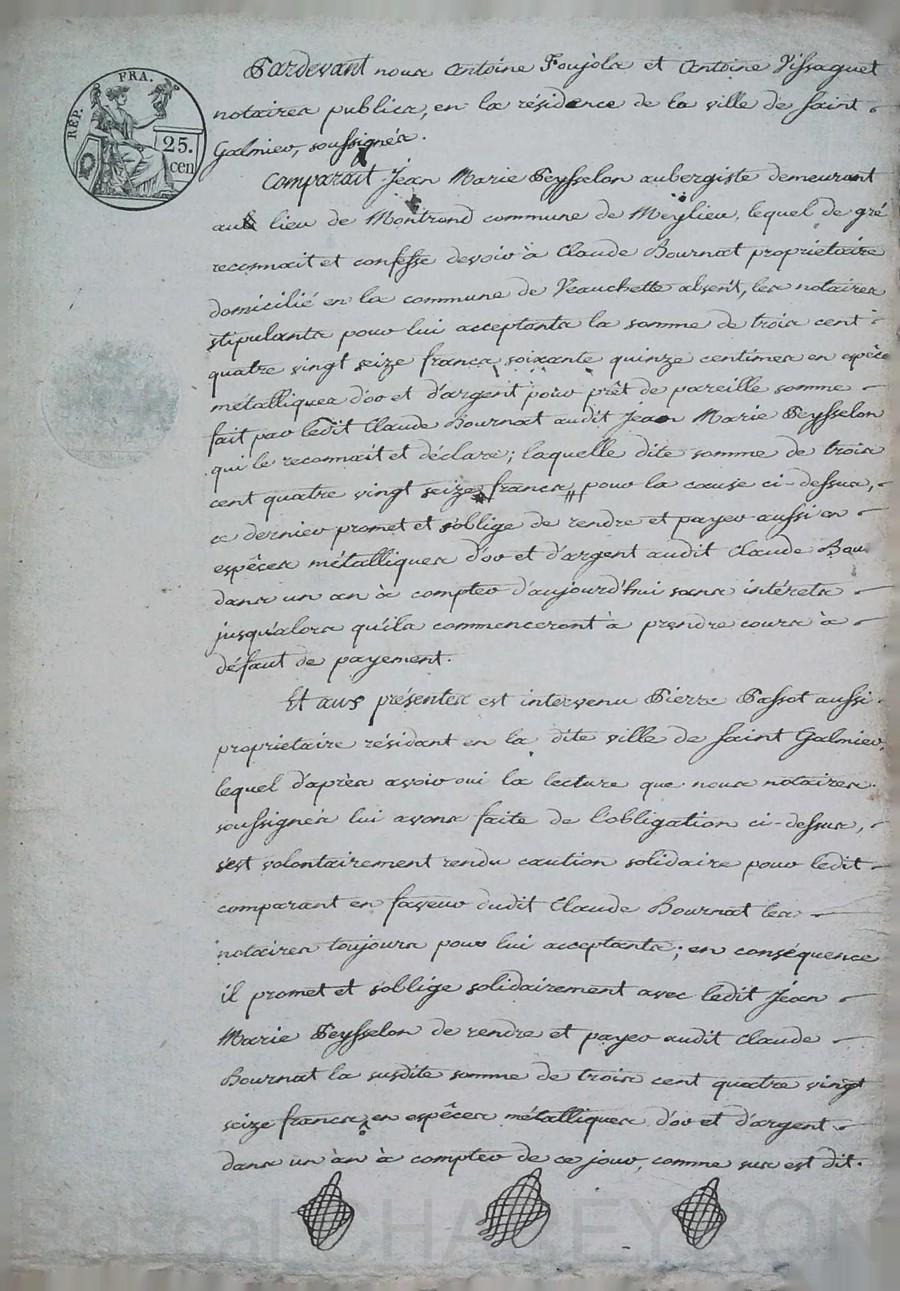 REP. FRA.
25.
cen
Pardevant nous Antoine Poujols et Antoine Vissaguet
notaires publics, en la résidence de la ville de saint
Galmier, soussignés.
Comparait Jean Marie Peysselon aubergiste demeurant
au lieu de Montrond commune de Meylieu, lequel de gré
reconnait et confesse devoir à Claude Bournat proprietaire
domicilié en la commune de Veauchette absent, les notaires
stipulants pour lui acceptants la somme de trois cent
quatre vingt seize francs soixante quinze centimes en espèce
métalliques d'or et d'argent pour prêt de pareille somme
fait par ledit Claude Bournat audit Jean Marie Peysselon
qui le reconnait et déclare; laquelle dite somme de trois
cent quatre vingt seize francs, pour la cause ci-dessus,
ce dernier promet et s'oblige de rendre et payer aussi en
espêces métalliques d'or et d'argent audit Claude Bou
dans un an à compter d'aujourd'hui sans intérets
jusqu'alors qu'ils commenceront à prendre cours à
défaut de payement.
Et aux présentes est intervenu Pierre Passot aussi
proprietaire résidant en la dite ville de saint Galmier,
lequel d'après avoir oui la lecture que nous notaires
soussignés lui avons faite de l'obligation ci-dessus,
s'est volontairement rendu caution solidaire pour ledit
comparant en faveur dudit Claude Bournat les
notaires toujours pour lui acceptants; en conséquence
il promet et s'oblige solidairement avec ledit Jean
Marie Peysselon de rendre et payer audit Claude
Bournat la susdite somme de trois cent quatre vingt
seize francs, en espêces métalliques d'or et d'argent
dans un an à compter de ce jour, comme sus est dit.
Pascal CHAREYRON